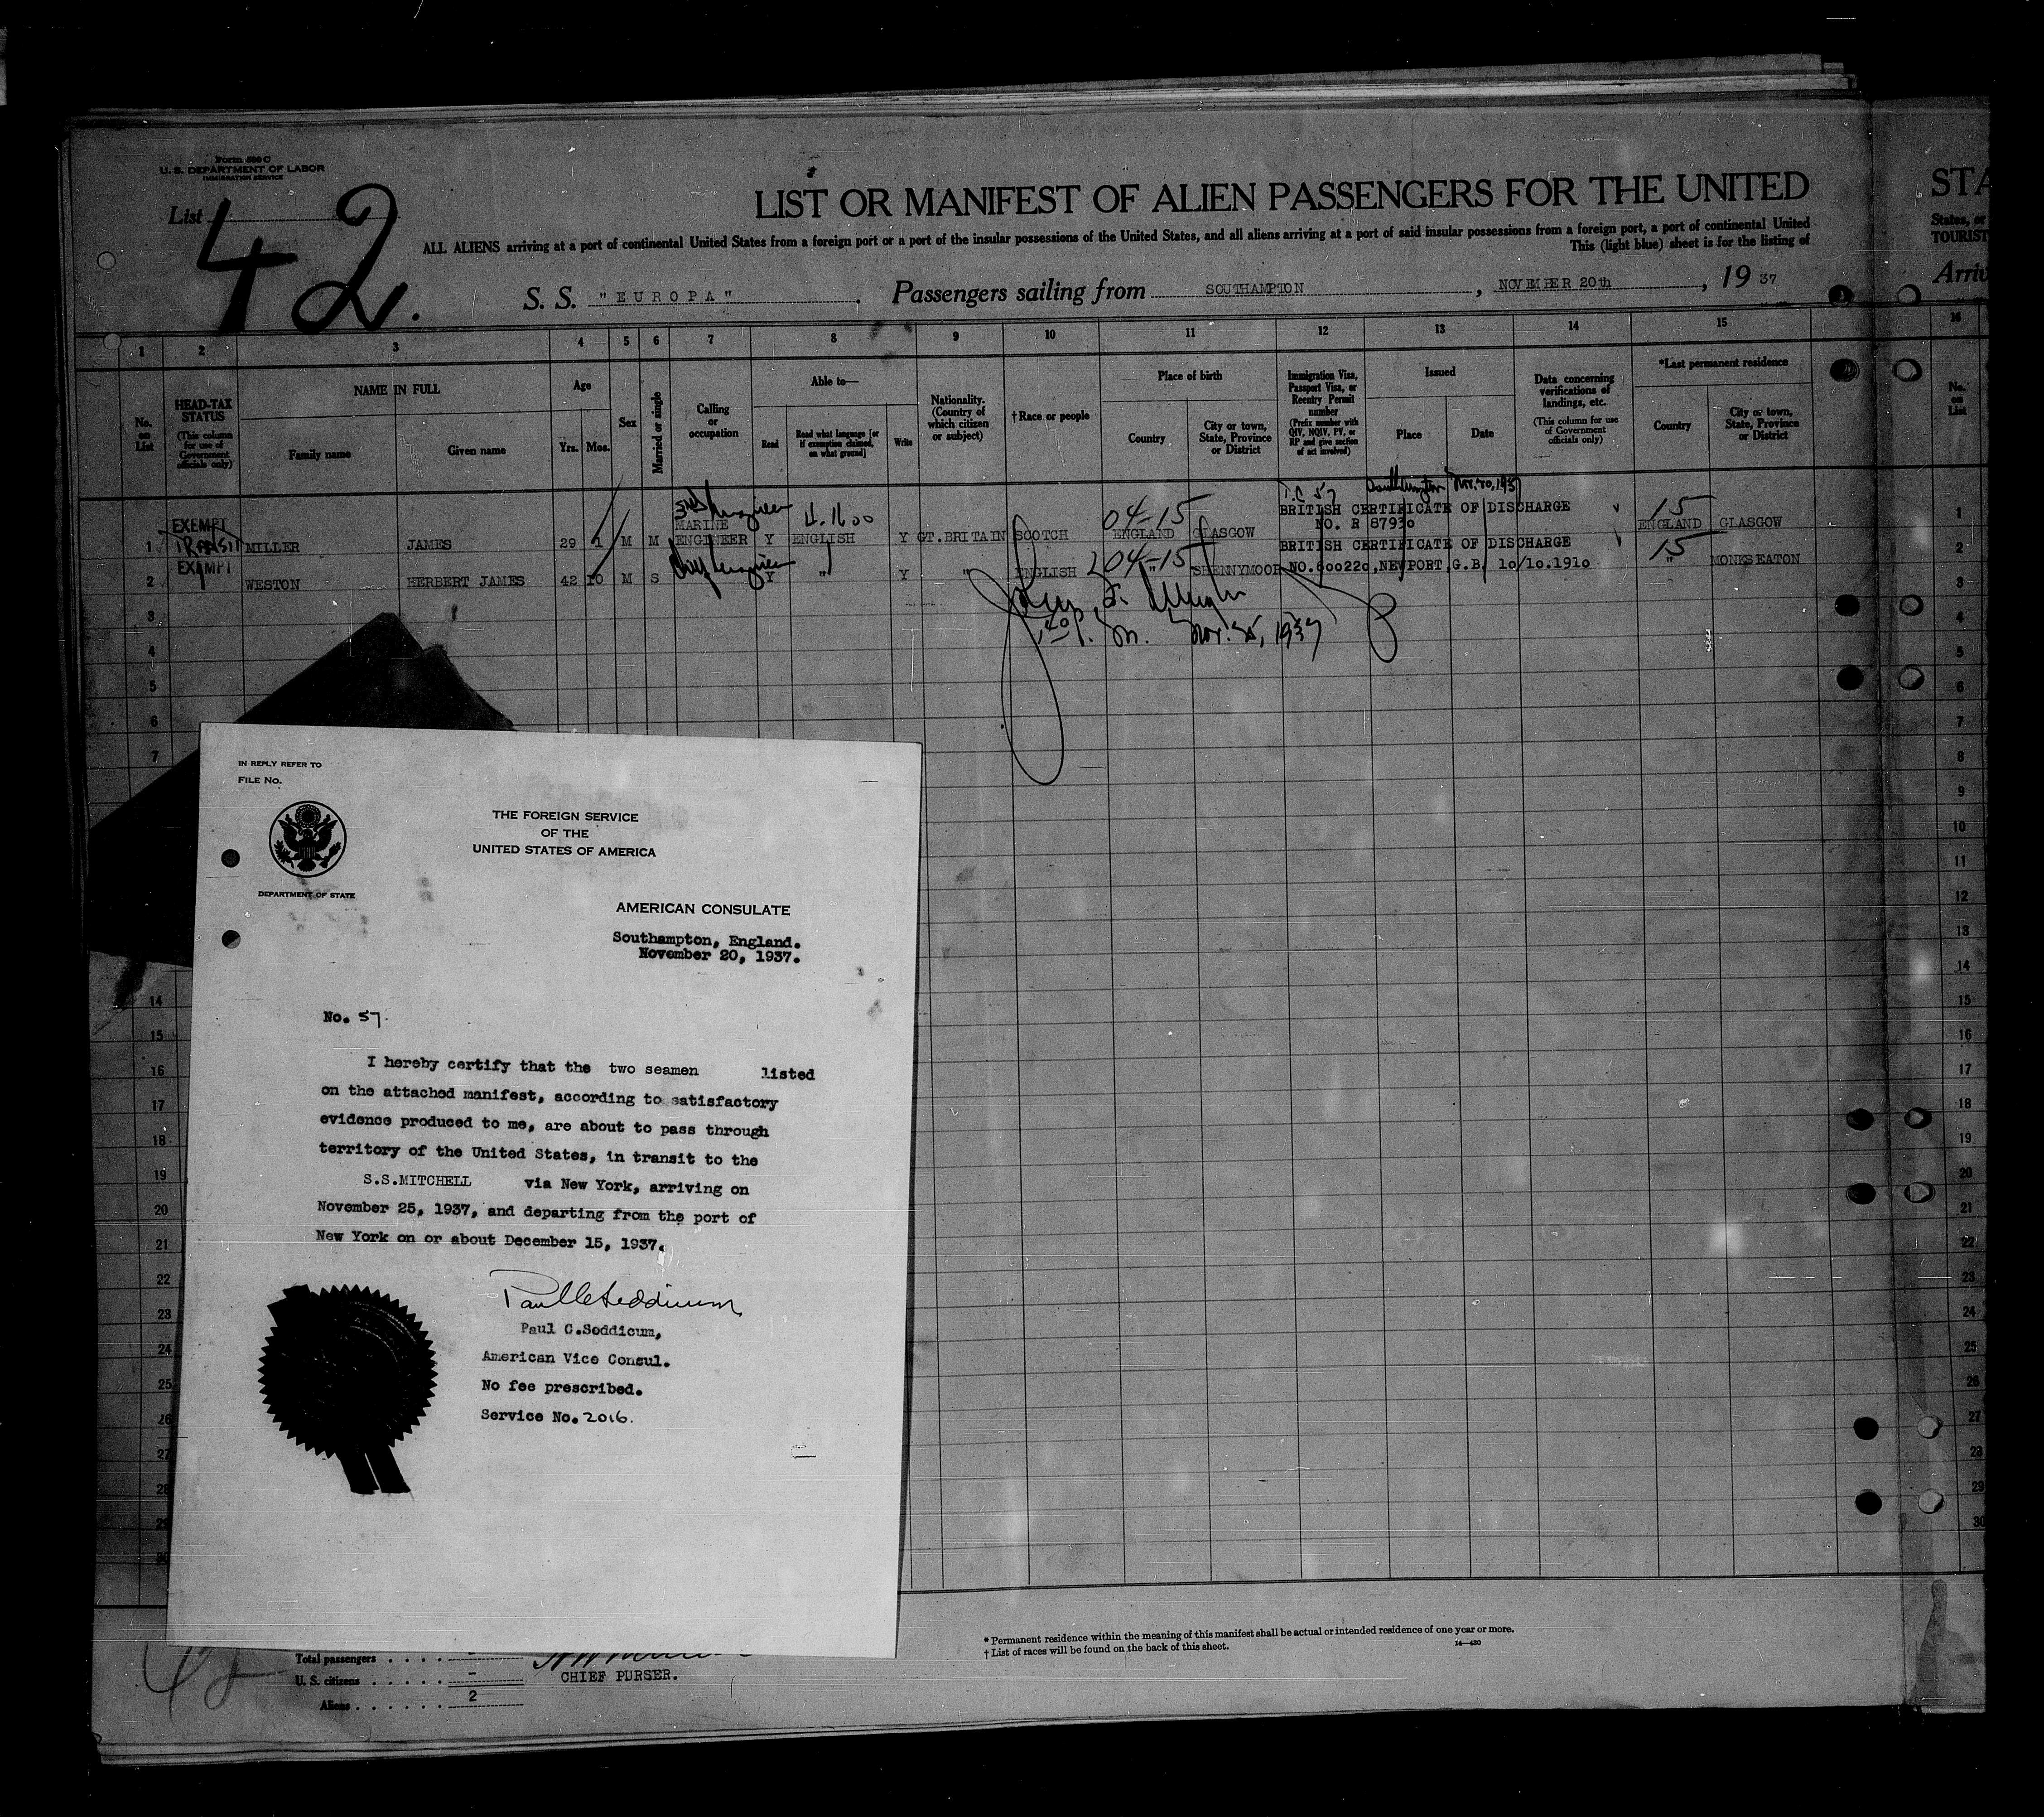 Form 500 C
U. S. DEPARTMENT OF LABOR
IMMIGRATION SERVICE
List 42.
LIST OR MANIFEST OF ALIEN PASSENGERS FOR THE UNITED
ALL ALIENS arriving at a port of continental United States from a foreign port or a port of the insular possessions of the United States, and all aliens arriving at a port of said insular possessions from a foreign port, a port of continental United
This (light blue) sheet is for the listing of
S. S. "EUROPA". Passengers sailing from SOUTHAMPTON, NOVEMBER 20th, 19 37
STA
States, or
TOURIST
Arriv
1 2 3 4 5 6 7 8 9 10 11 12 13 14 15 16
No. on List
HEAD-TAX STATUS (This column for use of Government officials only)
NAME IN FULL
Family name
Given name
Age
Yrs. Mos.
Sex
Married or single
Calling or occupation
Able to—
Read
Read what language [or if exemption claimed, on what ground]
Write
Nationality. (Country of which citizen or subject)
†Race or people
Place of birth
Country
City or town, State, Province or District
Immigration Visa, Passport Visa, or Reentry Permit number (Prefix number with QIV, NQIV, PV, or RP and give section of act involved)
Issued
Place
Date
Data concerning verifications of landings, etc. (This column for use of Government officials only)
*Last permanent residence
Country
City or town, State, Province or District
No. on List
T.C 57 Southampton Nov. 20, 1937
EXEMPT 3rd Engineer 04-15 BRITISH CERTIFICATE OF DISCHARGE 15
TRANSIT MARINE NO. R 87930
1 MILLER JAMES 29 1 M M ENGINEER Y ENGLISH Y GT.BRITAIN SCOTCH ENGLAND GLASGOW ENGLAND GLASGOW
EXEMPT Chief Engineer 204-15 BRITISH CERTIFICATE OF DISCHARGE 15
2 WESTON HERBERT JAMES 42 10 M S Y " Y " ENGLISH " SPENNYMOOR NO.600220,NEWPORT,G.B. 10/10.1910 " MONKSEATON
Nov. 25, 1937
IN REPLY REFER TO
FILE NO.
THE FOREIGN SERVICE
OF THE
UNITED STATES OF AMERICA
DEPARTMENT OF STATE
AMERICAN CONSULATE
Southampton, England.
November 20, 1937.
No. 57.
I hereby certify that the two seamen listed
on the attached manifest, according to satisfactory
evidence produced to me, are about to pass through
territory of the United States, in transit to the
S.S.MITCHELL via New York, arriving on
November 25, 1937, and departing from the port of
New York on or about December 15, 1937.
Paul C. Seddicum
Paul C.Seddicum,
American Vice Consul.
No fee prescribed.
Service No. 2016.
Total passengers . . . . -
U. S. citizens . . . . . -
Aliens . . . . . . 2
CHIEF PURSER.
* Permanent residence within the meaning of this manifest shall be actual or intended residence of one year or more.
† List of races will be found on the back of this sheet.
14—430